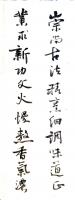 崇尚古法精烹细調味道正
業求新功文火慢熬香氣濃